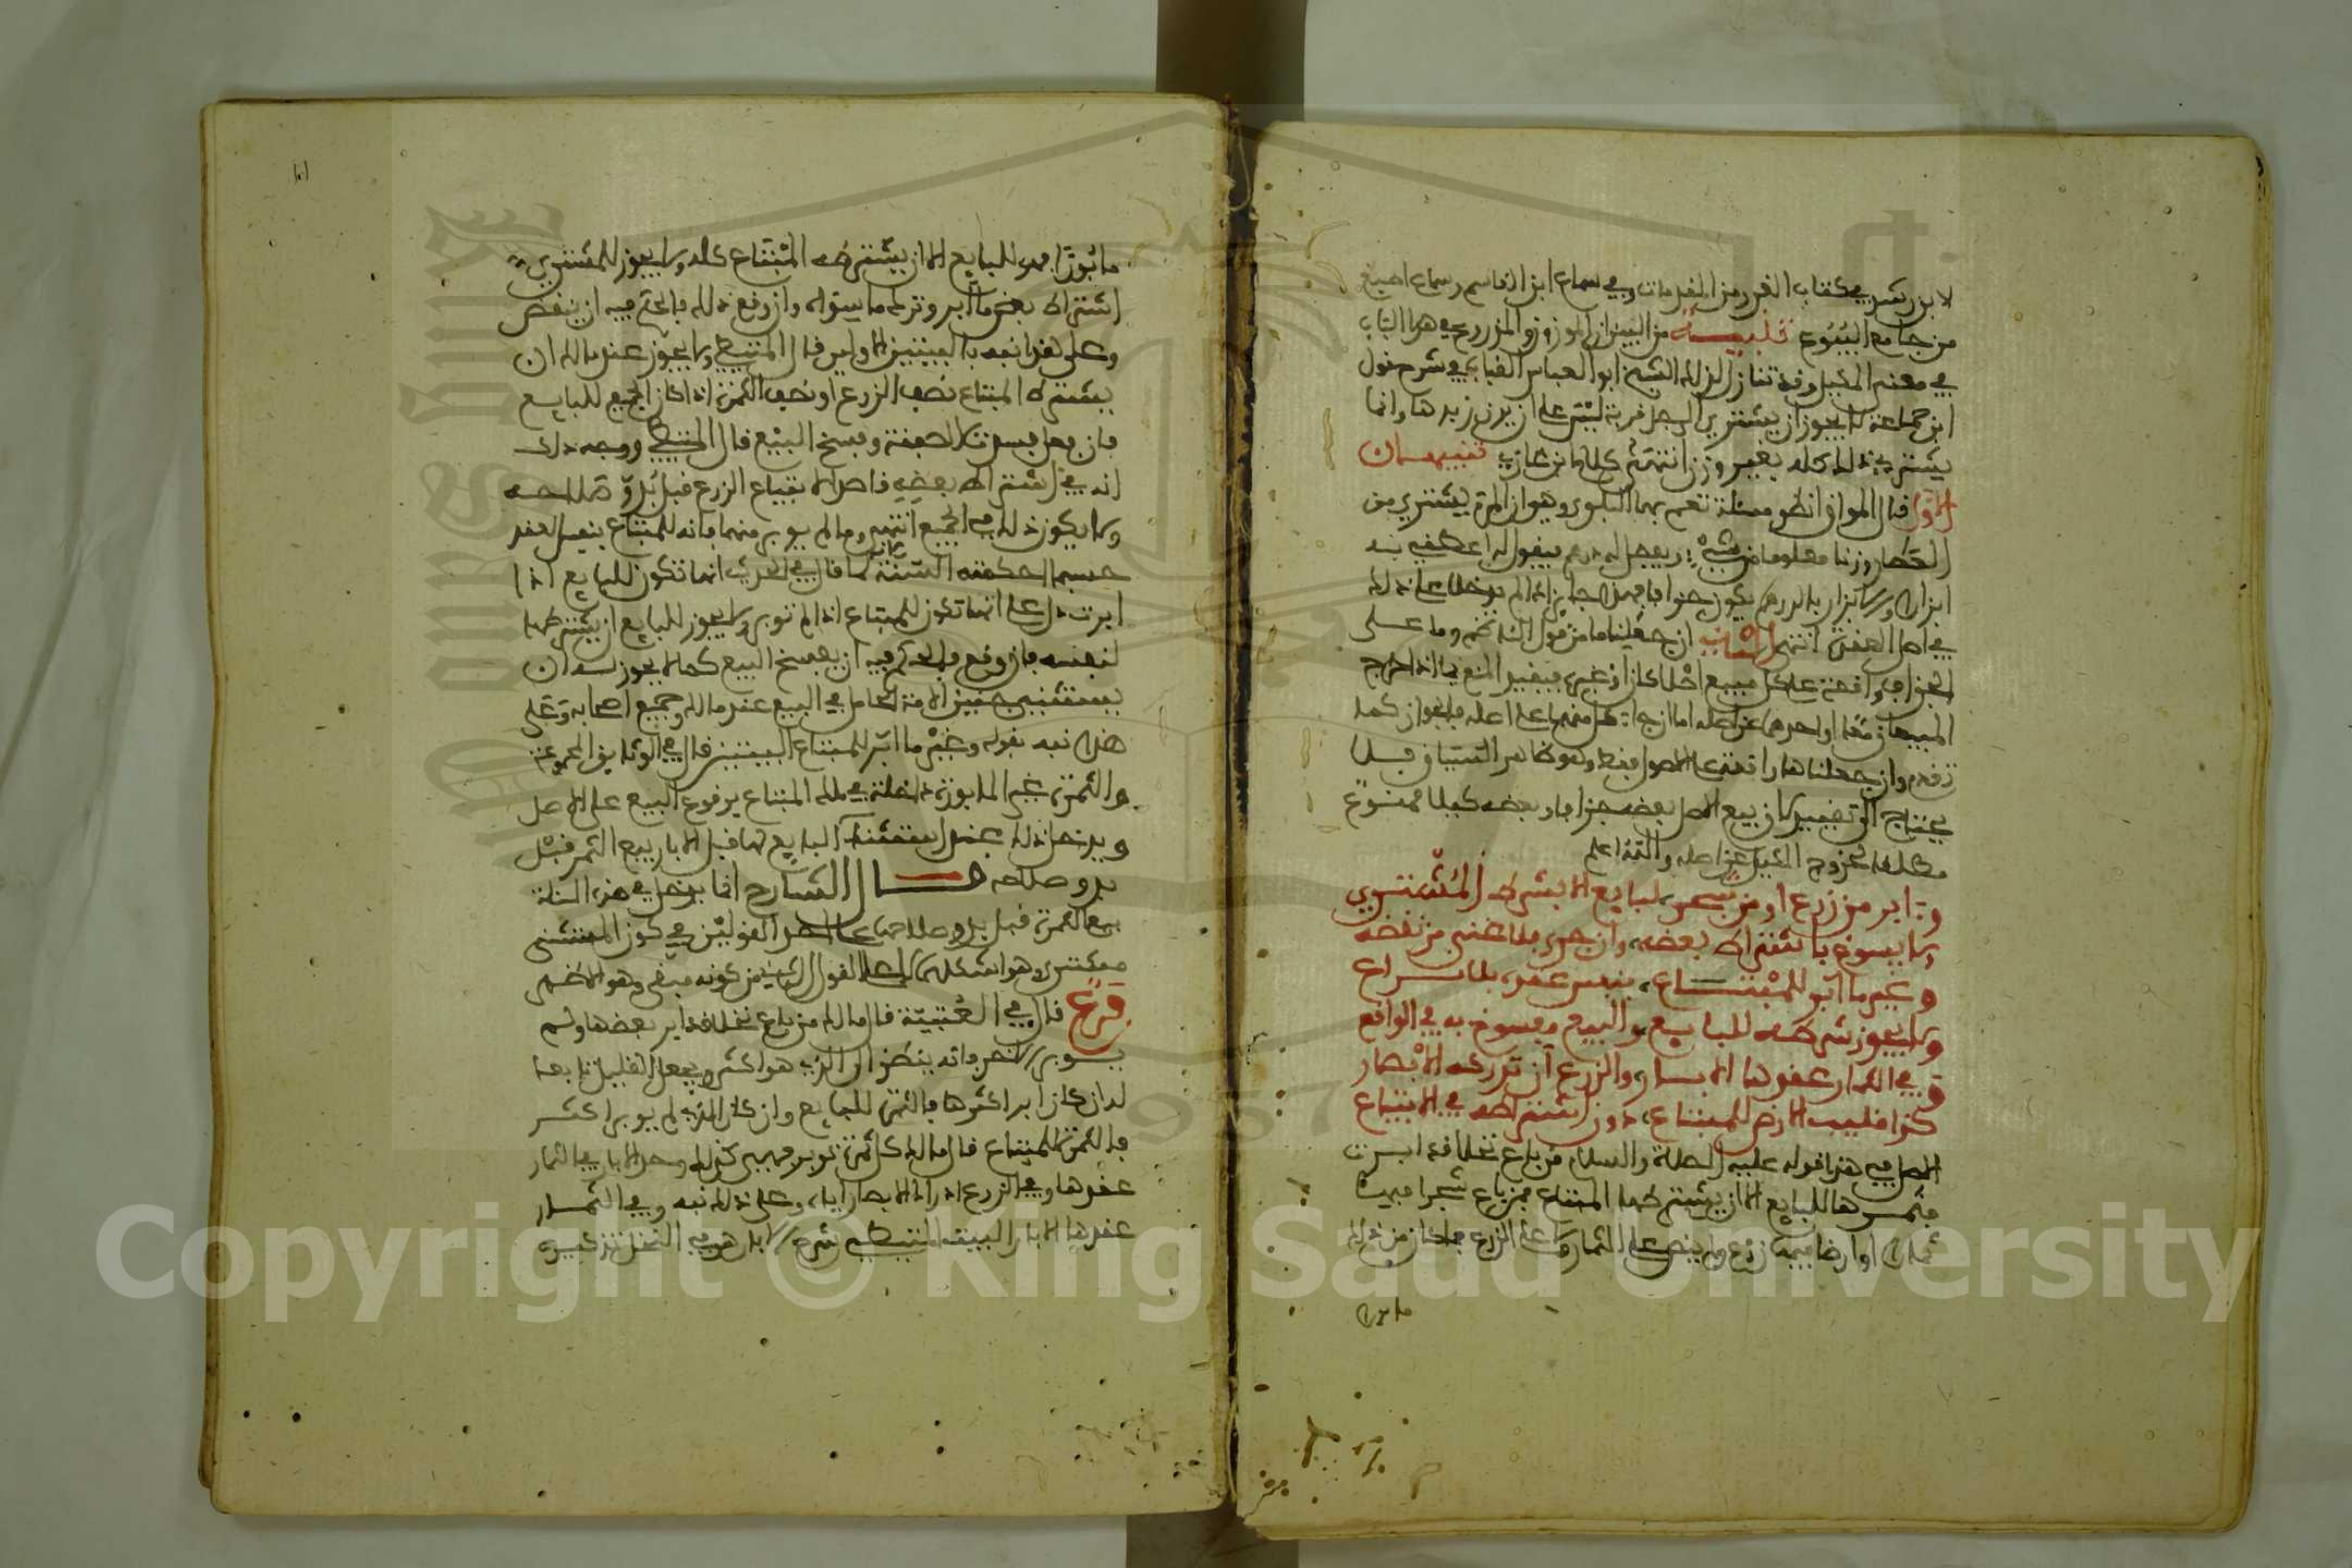 لابن رشد في كتاب الغرر من المقدمات وفي سماع ابن القاسم وسماع اصبغ
من جامع البيوع تنبيه من البين ان الموزون والمزروع في هذا الباب
في معنى المكيل وقد تنازل لذلك الشيخ ابو العباس القباب في شرح قول
ابن جماعة لا يجوز ان يشتري الرجل قربة لبن على ان يزن زبدها وانما
يشتري ذلك كله بغير وزن انتهى كلام ابن غازي تنبيهان
الاول قال المواق انظر مسئلة تعم بها البلوى وهو ان المرء يشتري من
العطار وزنا معلوما من شيء بعجل له درهم فيقول له اعطني فيه
ابزارا ولا ابزار بالدرهم يكون جزافا فهذا جايز اذا لم يدخلا على ذلك
في اصل العقد انتهى الثاني ان جعلنا ما من قول الناظم وما على
الجزاف واقعة على كل مبيع اصلا كان او غيره فيقيد المنع بما اذا خرج
المبيعان معا او احدهما عن اصله اما ان جاء كل منهما على اصله فالجواز كما
تقدم وان جعلناها راقعة على الاصول فقط وهو ظاهر السياق فلا
يحتاج الى تقييد لان بيع الاصل بعضه جزافا وبعضه كيلا ممنوع
مطلقا لخروج الكيل عن اصله والله اعلم
وما ابر من زرع او من شجر لبايع الا بشرط المشتري
ولا يسوغ باشتراط بعضه وان جرى فلا غنى من نقضه
وغير ما ابر للمبتاع بنفس عقده بلا نزاع
ولا يجوز شرطه للبايع والبيع مفسوخ به في الواقع
وفي الثمار عقدها الابار والزرع ان تدركه الابصار
كذا قليب الارض للمبتاع دون اشتراطه في الابتياع
الاصل في هذا قوله عليه الصلاة والسلام من باع نخلا قد ابرت
فثمرها للبايع الا ان يشترطها المبتاع فمن باع شجرا فيها
ثمار او ارضا فيها زرع ولم ينص على الثمار ولا على الزرع فما كان من ذلك
مابورا
١٥١
مابورا فهو للبايع الا ان يشترطه المبتاع كله ولا يجوز للمشتري
اشتراط بعض ما ابر وترك ما سواه وان وقع ذلك فالحكم فيه ان ينقض
وعلى هذا نبه بالبيتين الاولين قال المتيطي ولا يجوز عند مالك ان
يشترط المبتاع نصف الزرع او نصف الثمرة اذا كان الجميع للبايع
فان فعل فسدت الصفقة وفسخ البيع قال المتيطي ووجه ذلك
انه في اشتراط بعضه قاصد لابتياع الزرع قبل بدو صلاحه
ولا يكون ذلك في الجميع انتهى وما لم يوبر منهما فانه للمبتاع بنفس العقد
حسبما احكمته السنة لما قال في الحديث انها تكون للبايع اذا
ابرت دل على انها تكون للمبتاع اذا لم توبر ولا يجوز للبايع ان يشترطها
لنفسه فان وقع فالحكم فيه ان يفسخ البيع كما لا يجوز له ان
يستثني جنين الامة الحامل في البيع عند مالك وجميع اصحابه وعلى
هذا نبه بقوله وغير ما ابر للمبتاع البيتين قال في الوثايق المجموعة
والثمرة غير المابورة داخلة في ملك المبتاع بوقوع البيع على الاصل
ويدخل ذلك عند استثناء البايع لها قبل الابار بيع الثمر قبل
بدو صلاحه قال الشارح انما يدخل في هذه المسئلة
بيع الثمرة قبل بدو صلاحها على احد القولين في كون المستثنى
مشترى وهو مشكل على القول الثاني من كونه مبقى وهو الاظهر
فرع قال في العتبية قال مالك من باع نخلا قد ابر بعضها ولم
يوبر الاخر فانه ينظر الى الذي هو اكثر ويجعل القليل تابعا
له ان كان ابر اكثرها فالثمرة للبايع وان كان الذي لم يوبر اكثر
فالثمرة للمبتاع قال مالك كل ثمرة توبر فهي كذلك وحد الابار في الثمار
عقدها وفي الزرع ادراك الابصار اياه وعلى ذلك نبه وفي الثمار
عقدها الابار البيت المتيطي شرح الابار هو في النخل تذكيره
Copyright © King Saud University
1957